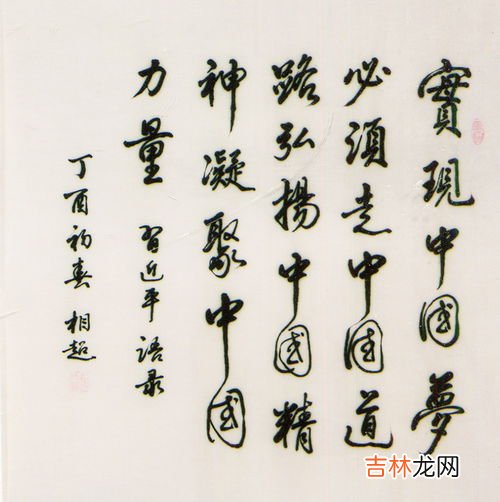 實現中國夢
必須走中國道
路弘揚中國精
神凝聚中國
力量 習近平语录
丁酉初春 相超
吉林龙网